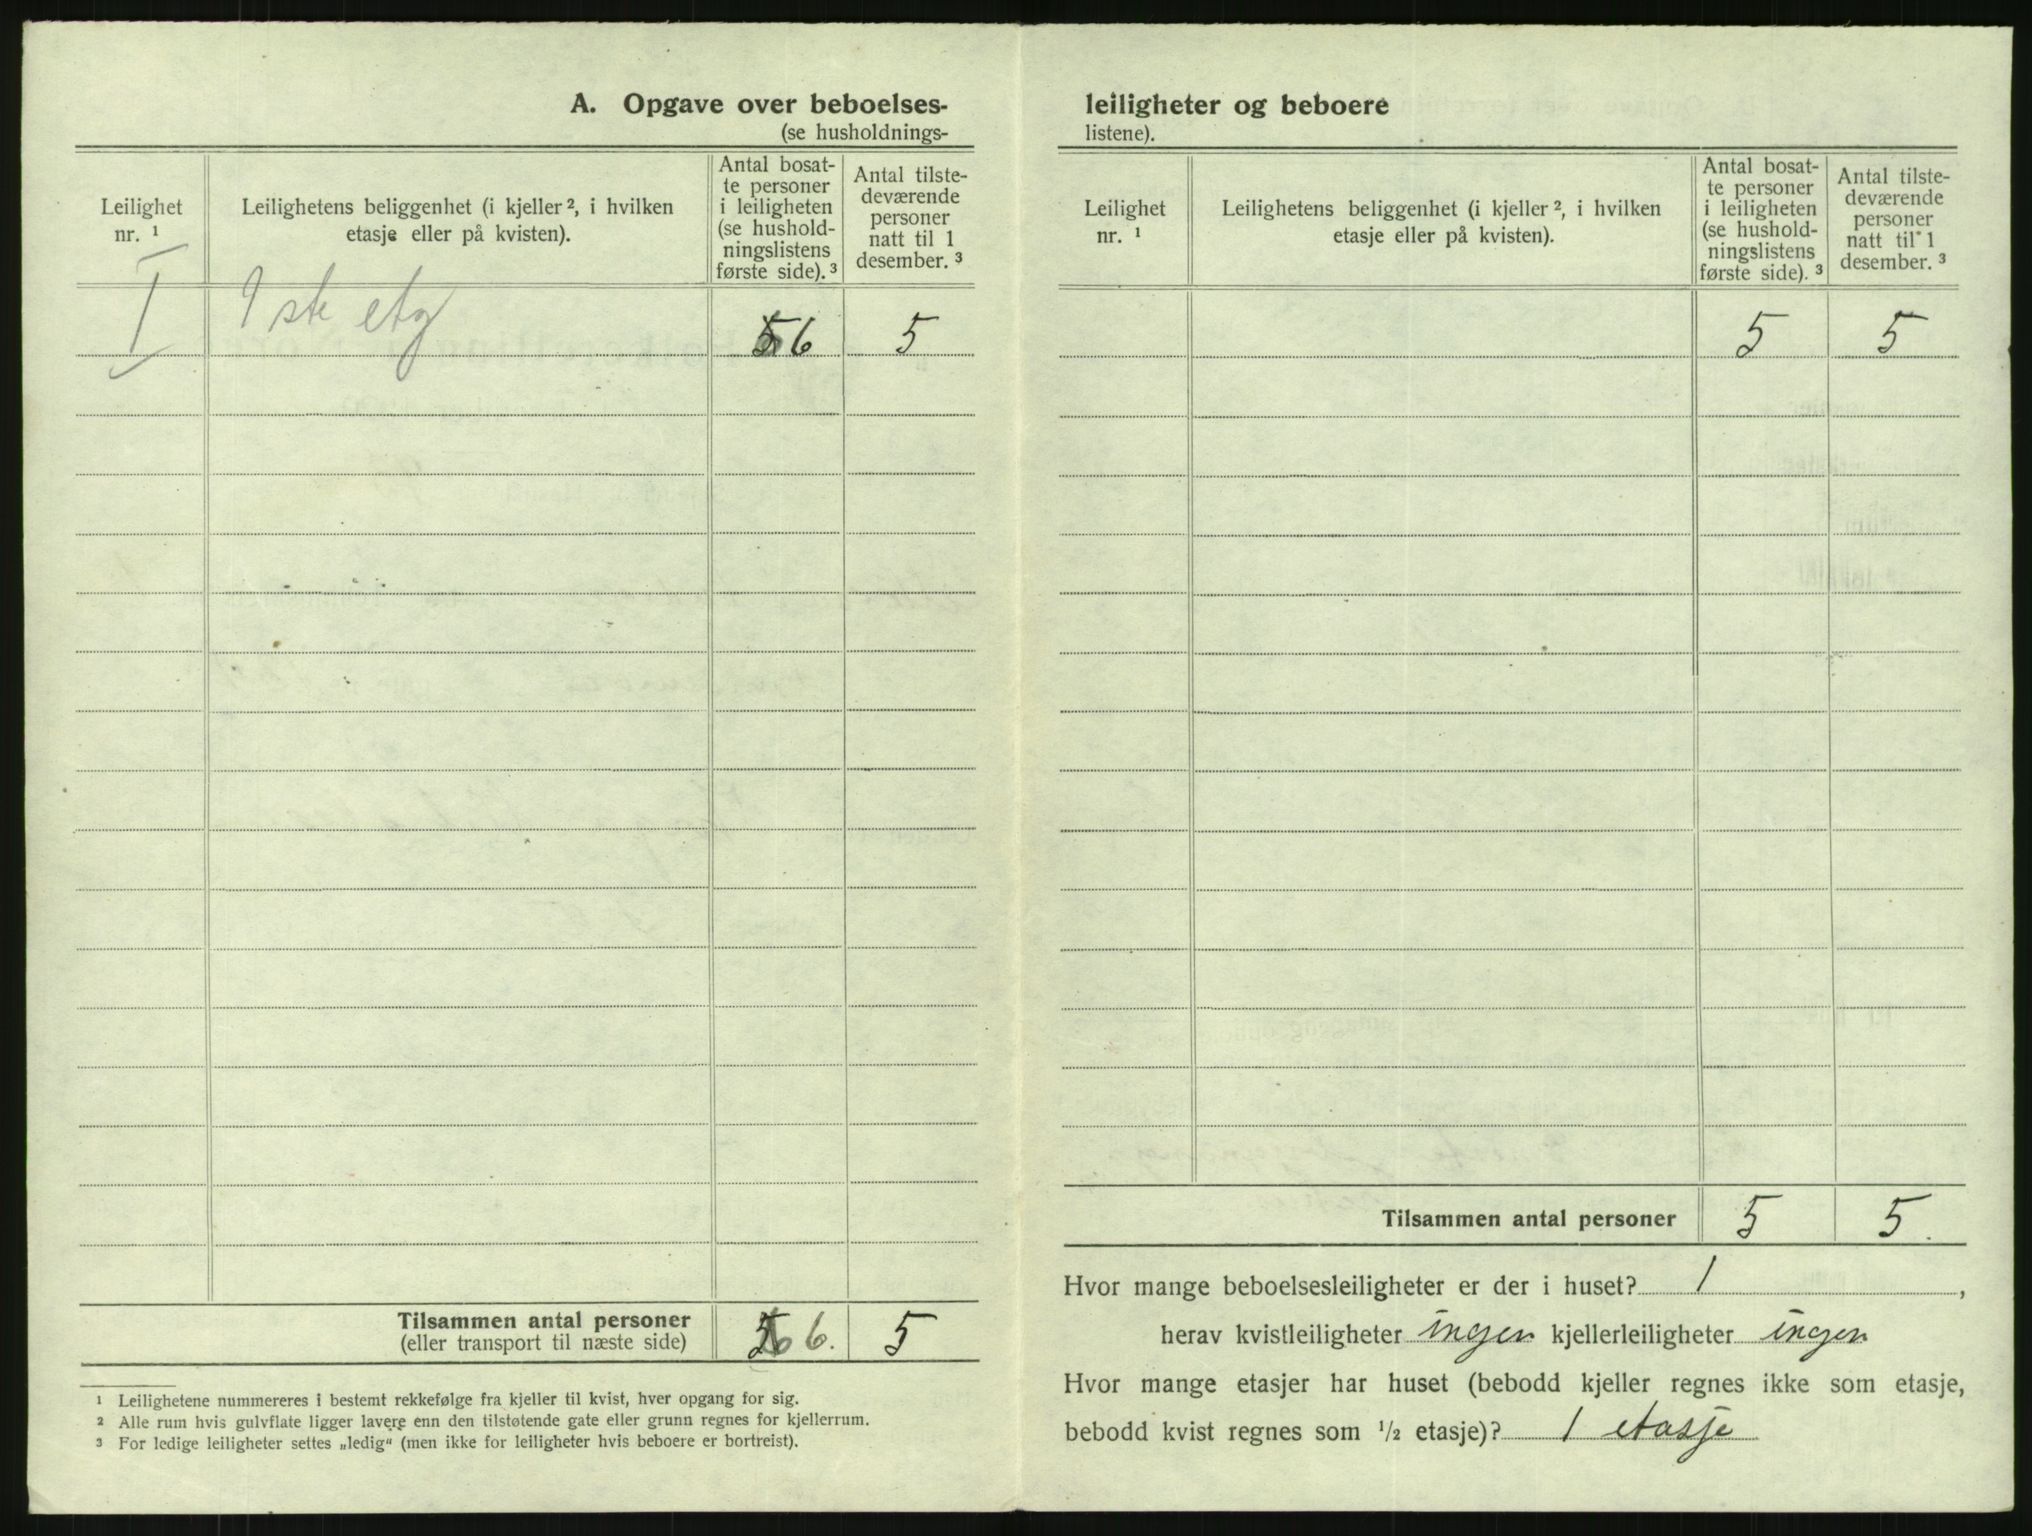 A. Opgave over beboelses-
(se husholdnings-
Leilighet
nr. ¹
Leilighetens beliggenhet (i kjeller ², i hvilken
etasje eller på kvisten).
Antal bosat-
te personer
i leiligheten
(se hushold-
ningslistens
første side). ³
Antal tilste-
deværende
personer
natt til 1
desember. ³
I 1ste etg 5 6 5
Tilsammen antal personer 5 6. 5
(eller transport til næste side)
¹ Leilighetene nummereres i bestemt rekkefølge fra kjeller til kvist, hver opgang for sig.
² Alle rum hvis gulvflate ligger lavere enn den tilstøtende gate eller grunn regnes for kjellerrum.
³ For ledige leiligheter settes „ledig“ (men ikke for leiligheter hvis beboere er bortreist).
leiligheter og beboere
listene).
Leilighet
nr. ¹
Leilighetens beliggenhet (i kjeller ², i hvilken
etasje eller på kvisten).
Antal bosat-
te personer
i leiligheten
(se hushold-
ningslistens
første side). ³
Antal tilste-
deværende
personer
natt til 1
desember. ³
5 5
Tilsammen antal personer 5 5
Hvor mange beboelsesleiligheter er der i huset? 1,
herav kvistleiligheter ingen kjellerleiligheter ingen
Hvor mange etasjer har huset (bebodd kjeller regnes ikke som etasje,
bebodd kvist regnes som ½ etasje)? 1 etasje